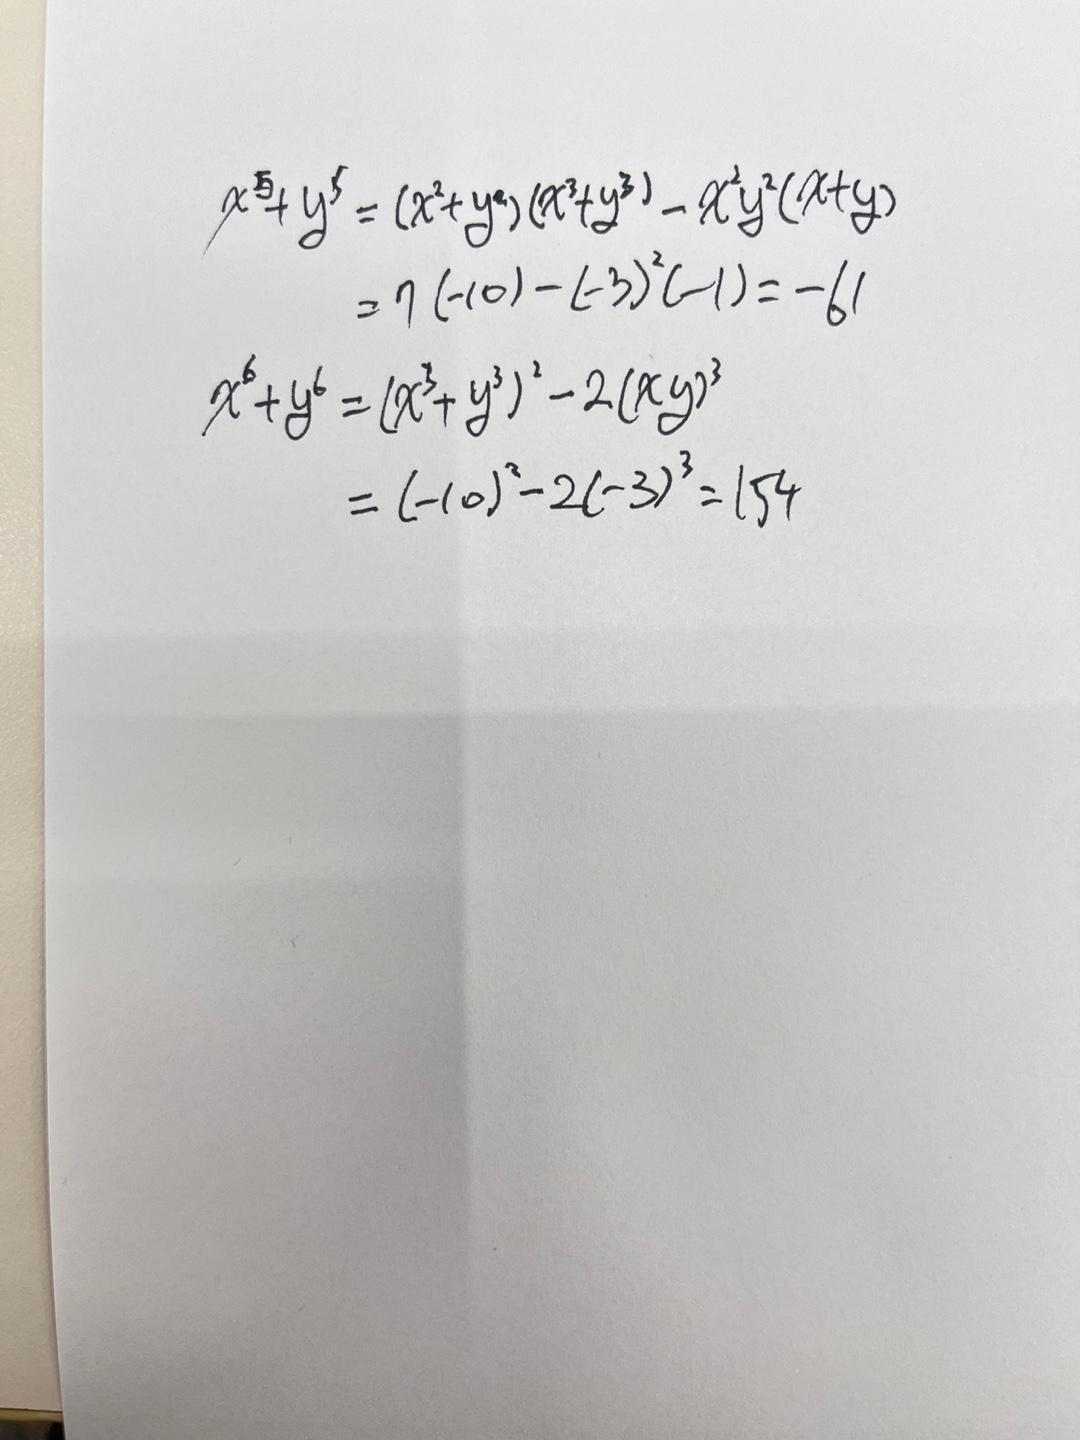 x⁵+y⁵=(x²+y²)(x³+y³)-x²y²(x+y)
=7(-10)-(-3)²(-1)=-61
x⁶+y⁶=(x³+y³)²-2(xy)³
=(-10)²-2(-3)³=154